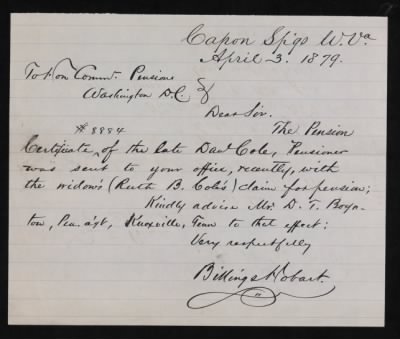 Capon Spgs W. Va
April 3. 1879.
To Hon Commr. Pensions
Washington D.C.
Dear Sir.
The Pension
#8884
Certificate ^ of the late Danl Cole, Pensioner
was sent to your office, recently, with
the widow's (Ruth B. Cole's) claim for pension;
Kindly advise Mr. D. T. Boyn-
ton, Pen. agt, Knoxville, Tenn to that effect;
Very respectfully
Billings Hobart.